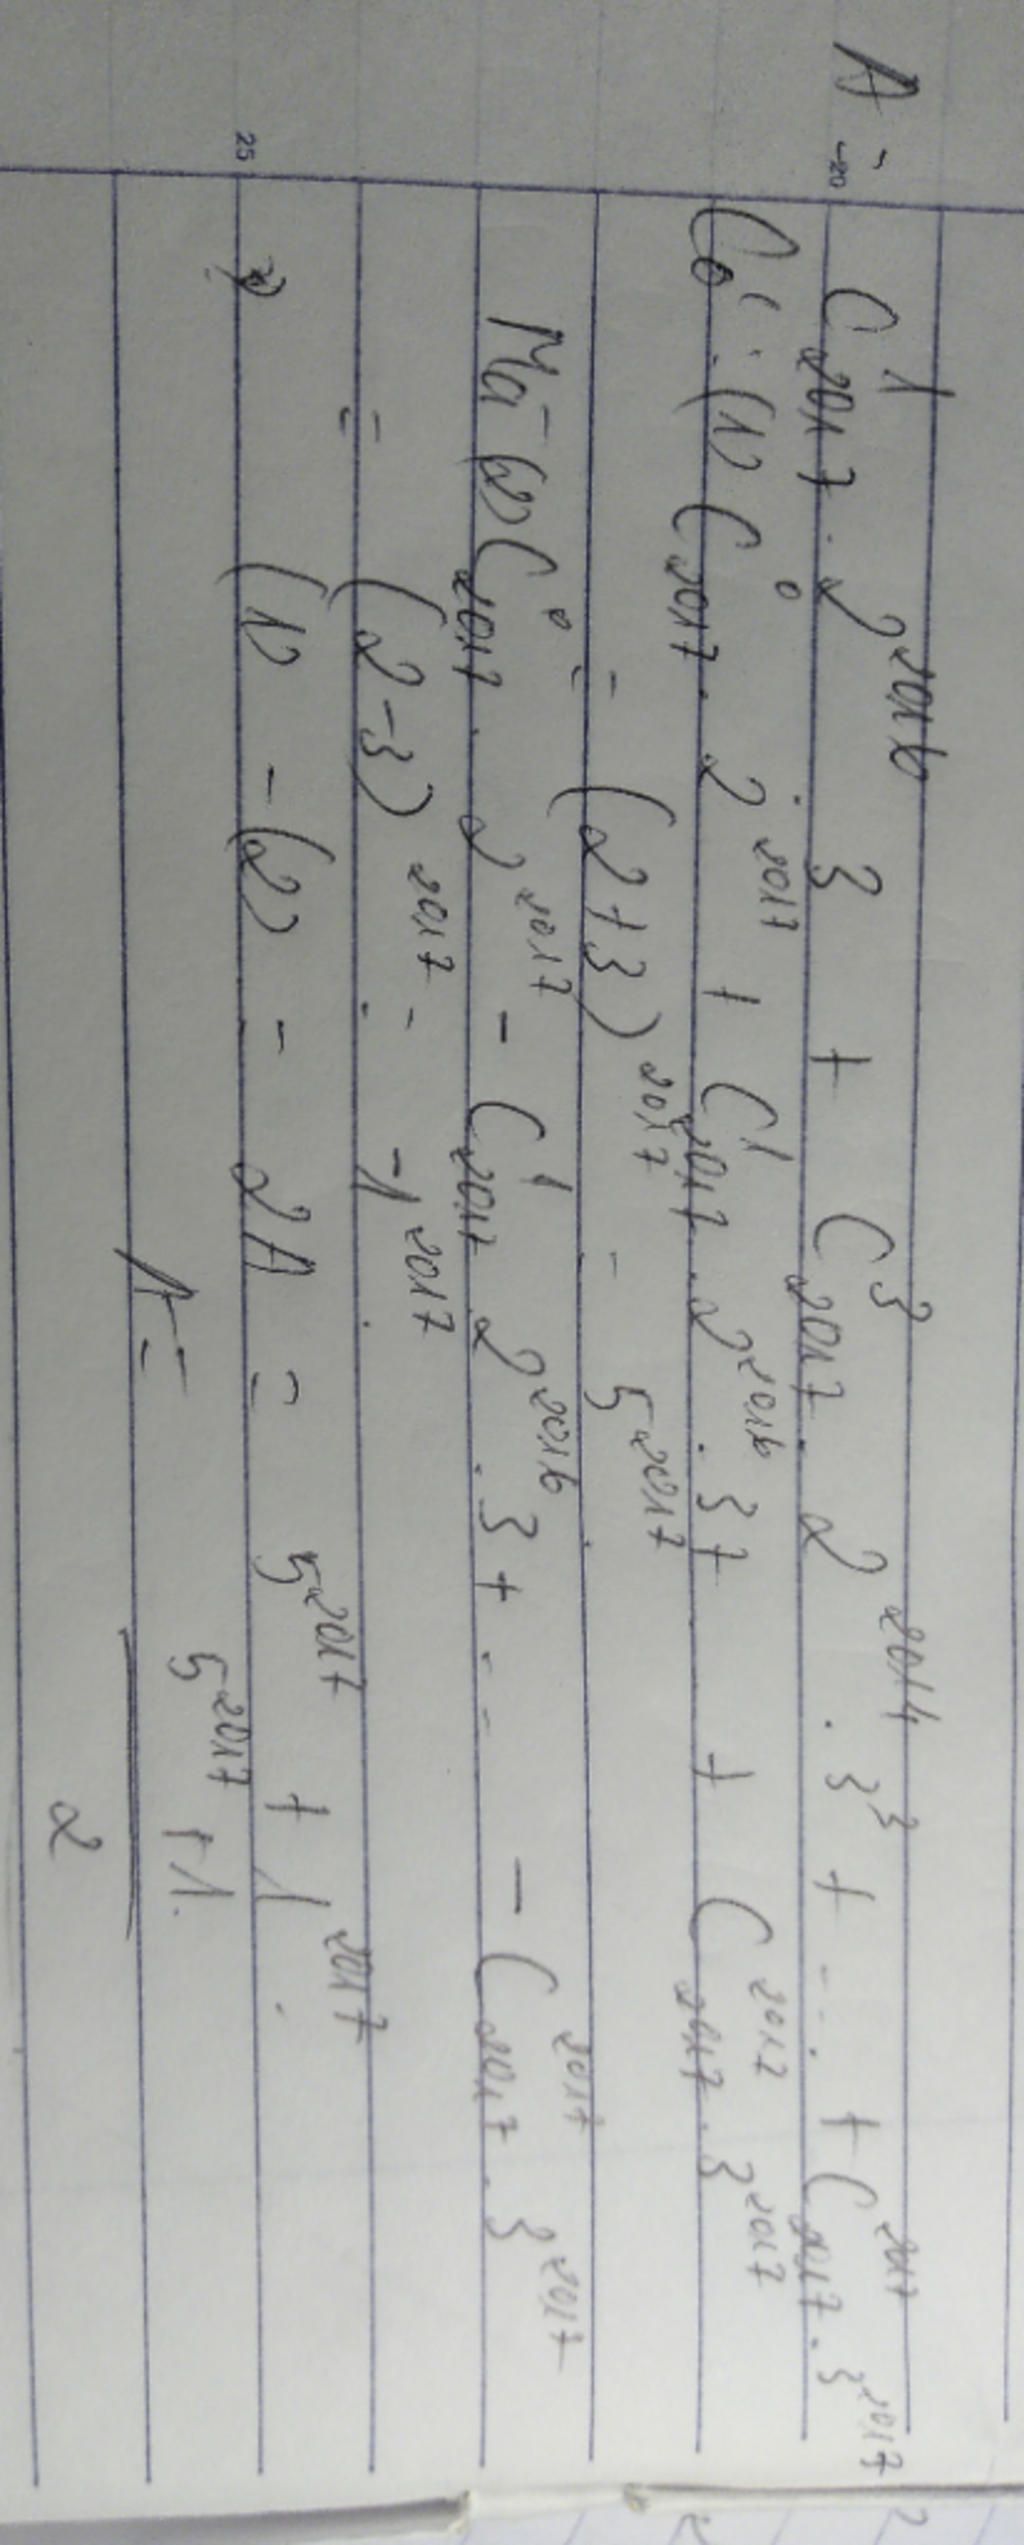 A = C¹₂₀₁₇ . 2²⁰¹⁶ 3 + C³₂₀₁₇ . 2²⁰¹⁴ . 3³ + ... + C²⁰¹⁷₂₀₁₇ . 3²⁰¹⁷
20
Có : (1) C⁰₂₀₁₇ . 2²⁰¹⁷ + C¹₂₀₁₇ . 2²⁰¹⁶ . 3 + + C²⁰¹⁷₂₀₁₇ . 3²⁰¹⁷
= (2+3)²⁰¹⁷ = 5²⁰¹⁷
Mà (2) C⁰₂₀₁₇ . 2²⁰¹⁷ - C¹₂₀₁₇ 2²⁰¹⁶ . 3 + ... - C²⁰¹⁷₂₀₁₇ . 3²⁰¹⁷
= (2-3)²⁰¹⁷ = -1²⁰¹⁷
25
(1) - (2) = 2A = 5²⁰¹⁷ + 1²⁰¹⁷
A = 5²⁰¹⁷ + 1
2